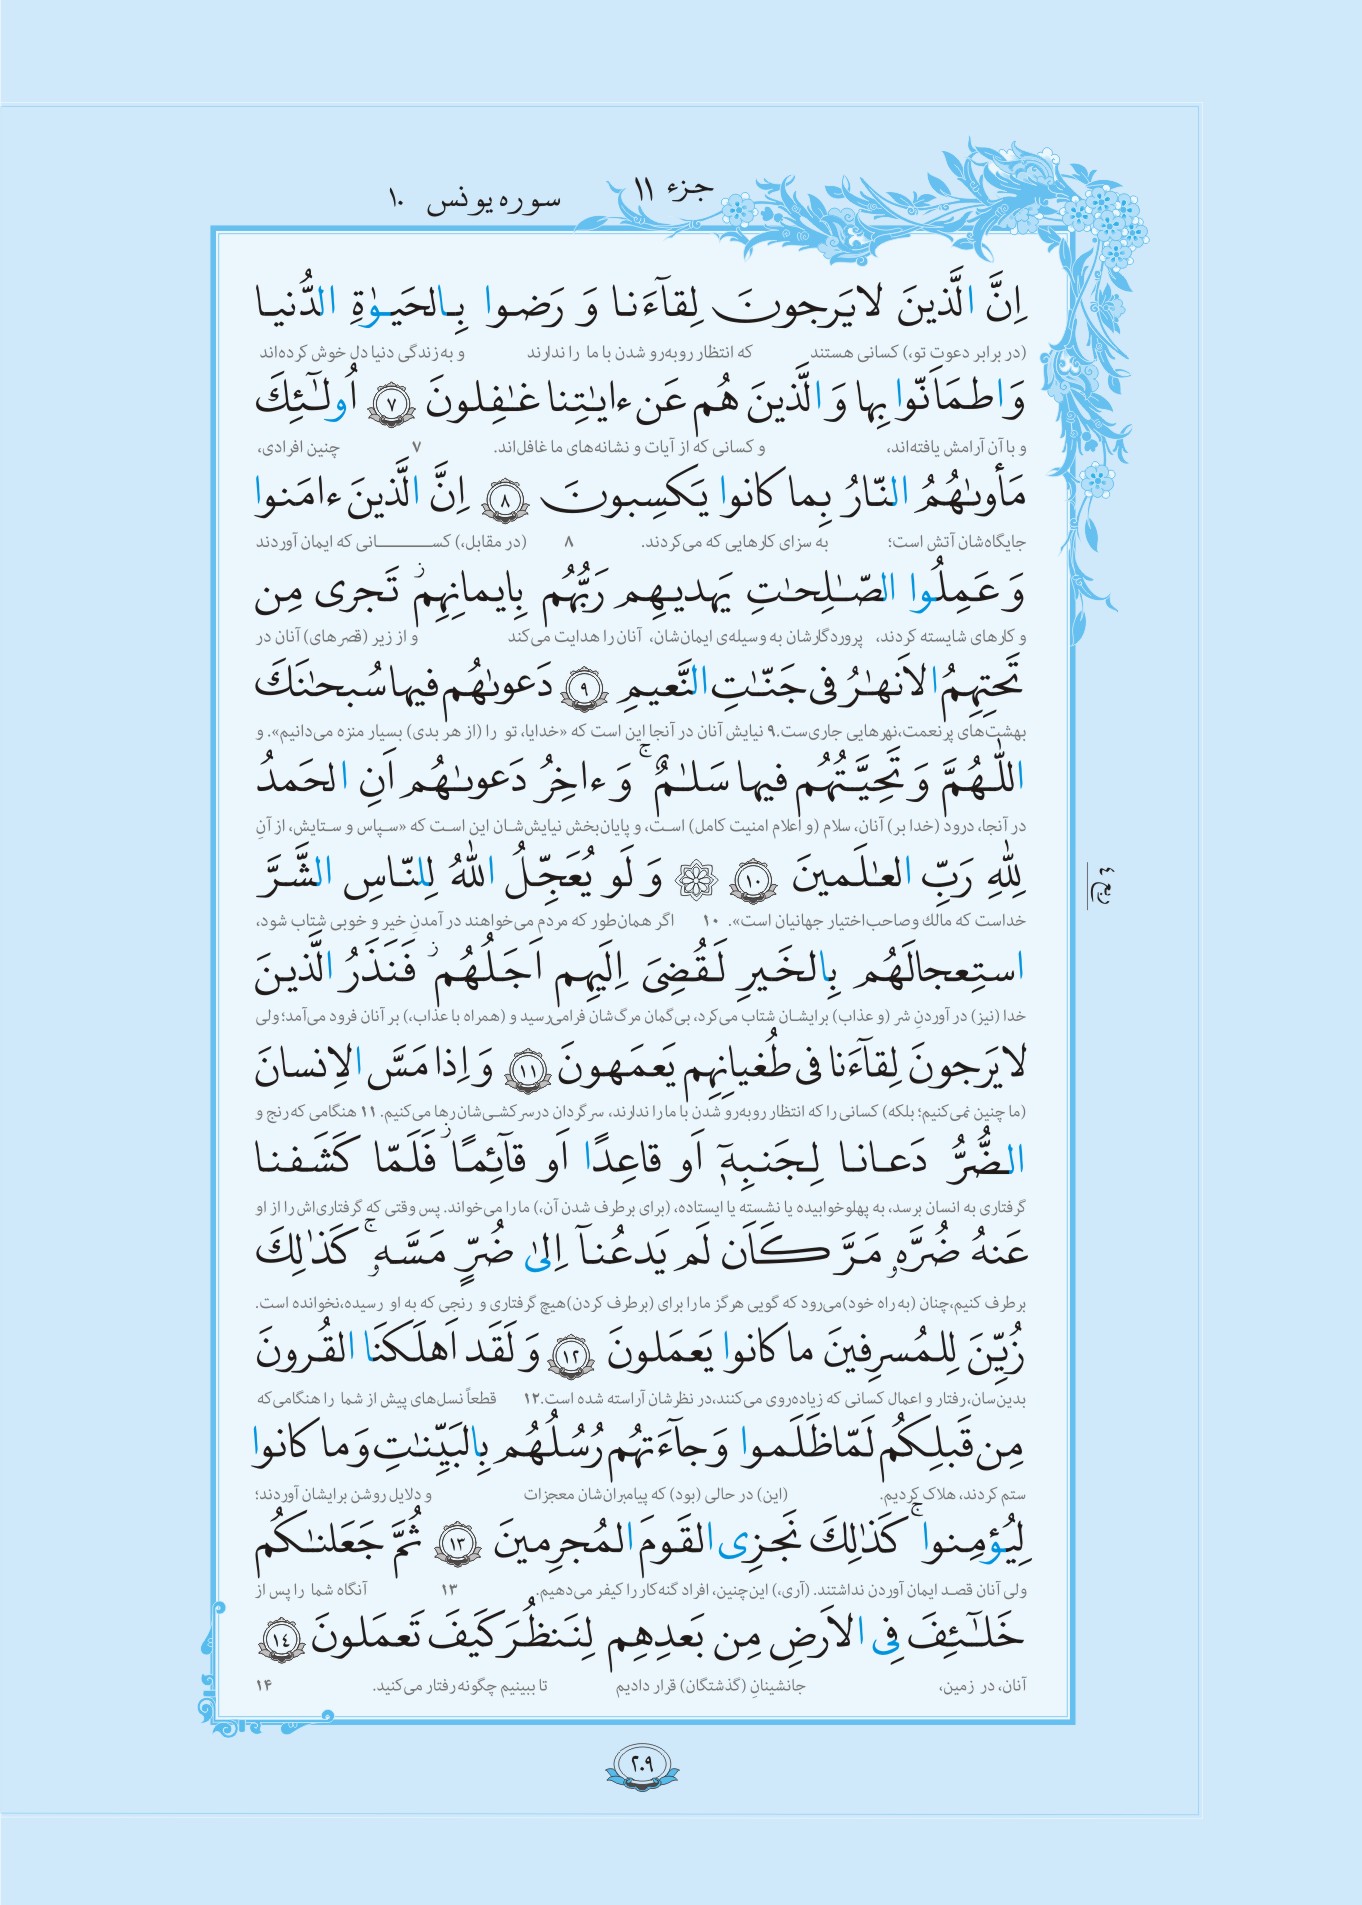 جزء ١١
سوره یونس ١٠
اِنَّ الَّذینَ لایَرجونَ لِقآءَنا وَ رَضوا بِالحَیوٰةِ الدُّنیا
(در برابر دعوتِ تو،) کسانی هستند که انتظار روبه‌رو شدن با ما را ندارند و به زندگی دنیا دل خوش کرده‌اند
وَاطمَاَنّوا بِها وَ الَّذینَ هُم عَن ءایٰتِنا غٰفِلونَ ٧ اُولٰٓئِكَ
و با آن آرامش یافته‌اند، و کسانی که از آیات و نشانه‌های ما غافل‌اند. ۷ چنین افرادی،
مَأوىٰهُمُ النّارُ بِما کانوا یَکسِبونَ ٨ اِنَّ الَّذینَ ءامَنوا
جایگاه‌شان آتش است؛ به سزای کارهایی که می‌کردند. ۸ (در مقابل،) کســـــانی که ایمان آوردند
وَ عَمِلُوا الصّٰلِحٰتِ یَهدیهِم رَبُّهُم بِایمانِهِم ز تَجری مِن
و کارهای شایسته کردند، پروردگارشان به وسیله‌ی ایمان‌شان، آنان را هدایت می‌کند و از زیر (قصرهای) آنان در
تَحتِهِمُ الاَنهٰرُ فی جَنّٰتِ النَّعیمِ ٩ دَعوىٰهُم فیها سُبحٰنَكَ
بهشت‌های پرنعمت، نهرهایی جاری‌ست.۹ نیایش آنان در آنجا این است که «خدایا، تو را (از هر بدی) بسیار منزه می‌دانیم». و
اللّٰهُمَّ وَ تَحِیَّتُهُم فیها سَلٰمٌ ج وَ ءاخِرُ دَعوىٰهُم اَنِ الحَمدُ
در آنجا، درود (خدا بر) آنان، سلام (و اعلام امنیت کامل) است، و پایان‌بخش نیایش‌شان این است که «سپاس و ستایش، از آنِ
لِلّٰهِ رَبِّ العٰلَمینَ ١٠ وَ لَو یُعَجِّلُ اللّٰهُ لِلنّاسِ الشَّرَّ
خداست که مالك و صاحب‌اختیار جهانیان است». ۱۰ اگر همان‌طور که مردم می‌خواهند در آمدنِ خیر و خوبی شتاب شود،
ربع ٤
استِعجالَهُم بِالخَیرِ لَقُضِیَ اِلَیهِم اَجَلُهُم ز فَنَذَرُ الَّذینَ
خدا (نیز) در آوردنِ شر (و عذاب) برایشان شتاب می‌کرد، بی‌گمان مرگ‌شان فرامی‌رسید و (همراه با عذاب،) بر آنان فرود می‌آمد؛ ولی
لایَرجونَ لِقآءَنا فی طُغیانِهِم یَعمَهونَ ١١ وَ اِذا مَسَّ الاِنسانَ
(ما چنین نمی‌کنیم؛ بلکه) کسانی را که انتظار روبه‌رو شدن با ما را ندارند، سرگردان در سرکشی‌شان رها می‌کنیم. ۱۱ هنگامی که رنج و
الضُّرُّ دَعانا لِجَنبِهٖٓ اَو قاعِدًا اَو قآئِمًا ز فَلَمّا کَشَفنا
گرفتاری به انسان برسد، به پهلوخوابیده یا نشسته یا ایستاده، (برای برطرف شدن آن،) ما را می‌خواند. پس وقتی که گرفتاری‌اش را از او
عَنهُ ضُرَّهٗ مَرَّ کَاَن لَم یَدعُنآ اِلىٰ ضُرٍّ مَسَّهٗ ج کَذٰلِكَ
برطرف کنیم، چنان (به راه خود) می‌رود که گویی هرگز ما را برای (برطرف کردن) هیچ گرفتاری و رنجی که به او رسیده، نخوانده است.
زُیِّنَ لِلمُسرِفینَ ما کانوا یَعمَلونَ ١٢ وَ لَقَد اَهلَکنَا القُرونَ
بدین‌سان، رفتار و اعمال کسانی که زیاده‌روی می‌کنند، در نظرشان آراسته شده است.۱۲ قطعاً نسل‌های پیش از شما را هنگامی‌که
مِن قَبلِکُم لَمّا ظَلَموا وَ جآءَتهُم رُسُلُهُم بِالبَیِّنٰتِ وَ ما کانوا
ستم کردند، هلاک کردیم. (این) در حالی (بود) که پیامبران‌شان معجزات و دلایل روشن برایشان آوردند؛
لِیُؤمِنوا ج کَذٰلِكَ نَجزِی القَومَ المُجرِمینَ ١٣ ثُمَّ جَعَلنٰکُم
ولی آنان قصد ایمان آوردن نداشتند. (آری،) این‌چنین، افراد گنه‌کار را کیفر می‌دهیم. ۱۳ آنگاه شما را پس از
خَلٰٓئِفَ فِی الاَرضِ مِن بَعدِهِم لِنَنظُرَ کَیفَ تَعمَلونَ ١٤
آنان، در زمین، جانشینانِ (گذشتگان) قرار دادیم تا ببینیم چگونه رفتار می‌کنید. ۱۴
٢٠٩